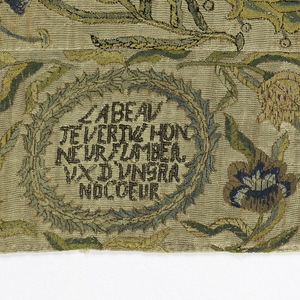 LABEAV
TEVERTVHON
NEVRFLAMBEA
VXDVNGRA
NDCOEUR